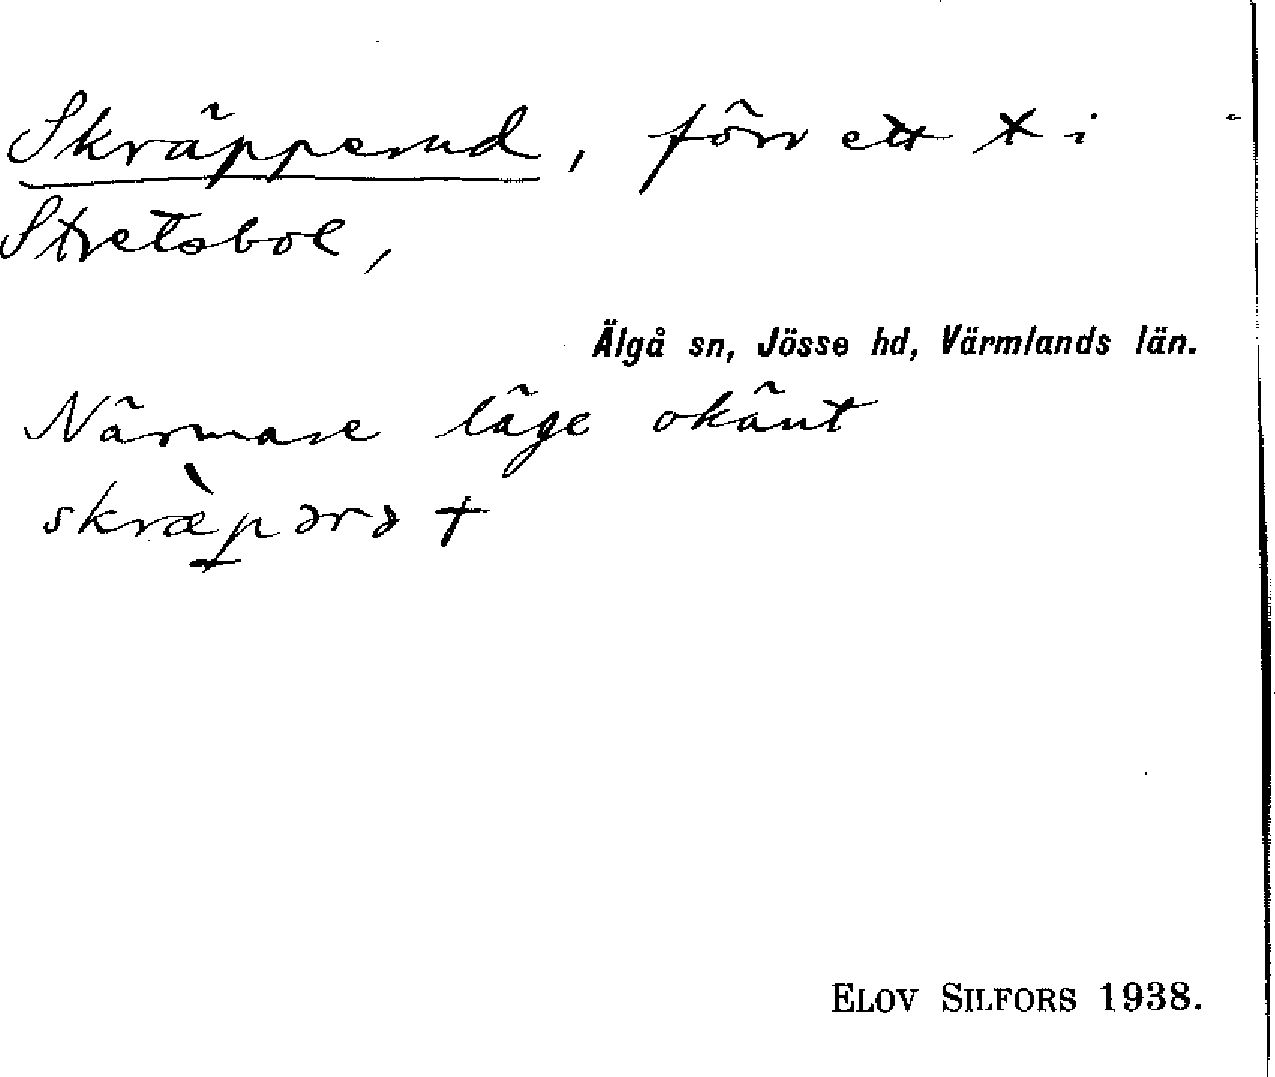 Skräpperud, förr ett t i
Stretsbol,
Älgå sn, Jösse hd, Värmlands län.
Närmare läge okänt
skræ̀pərə †
ELOV SILFORS 1938.